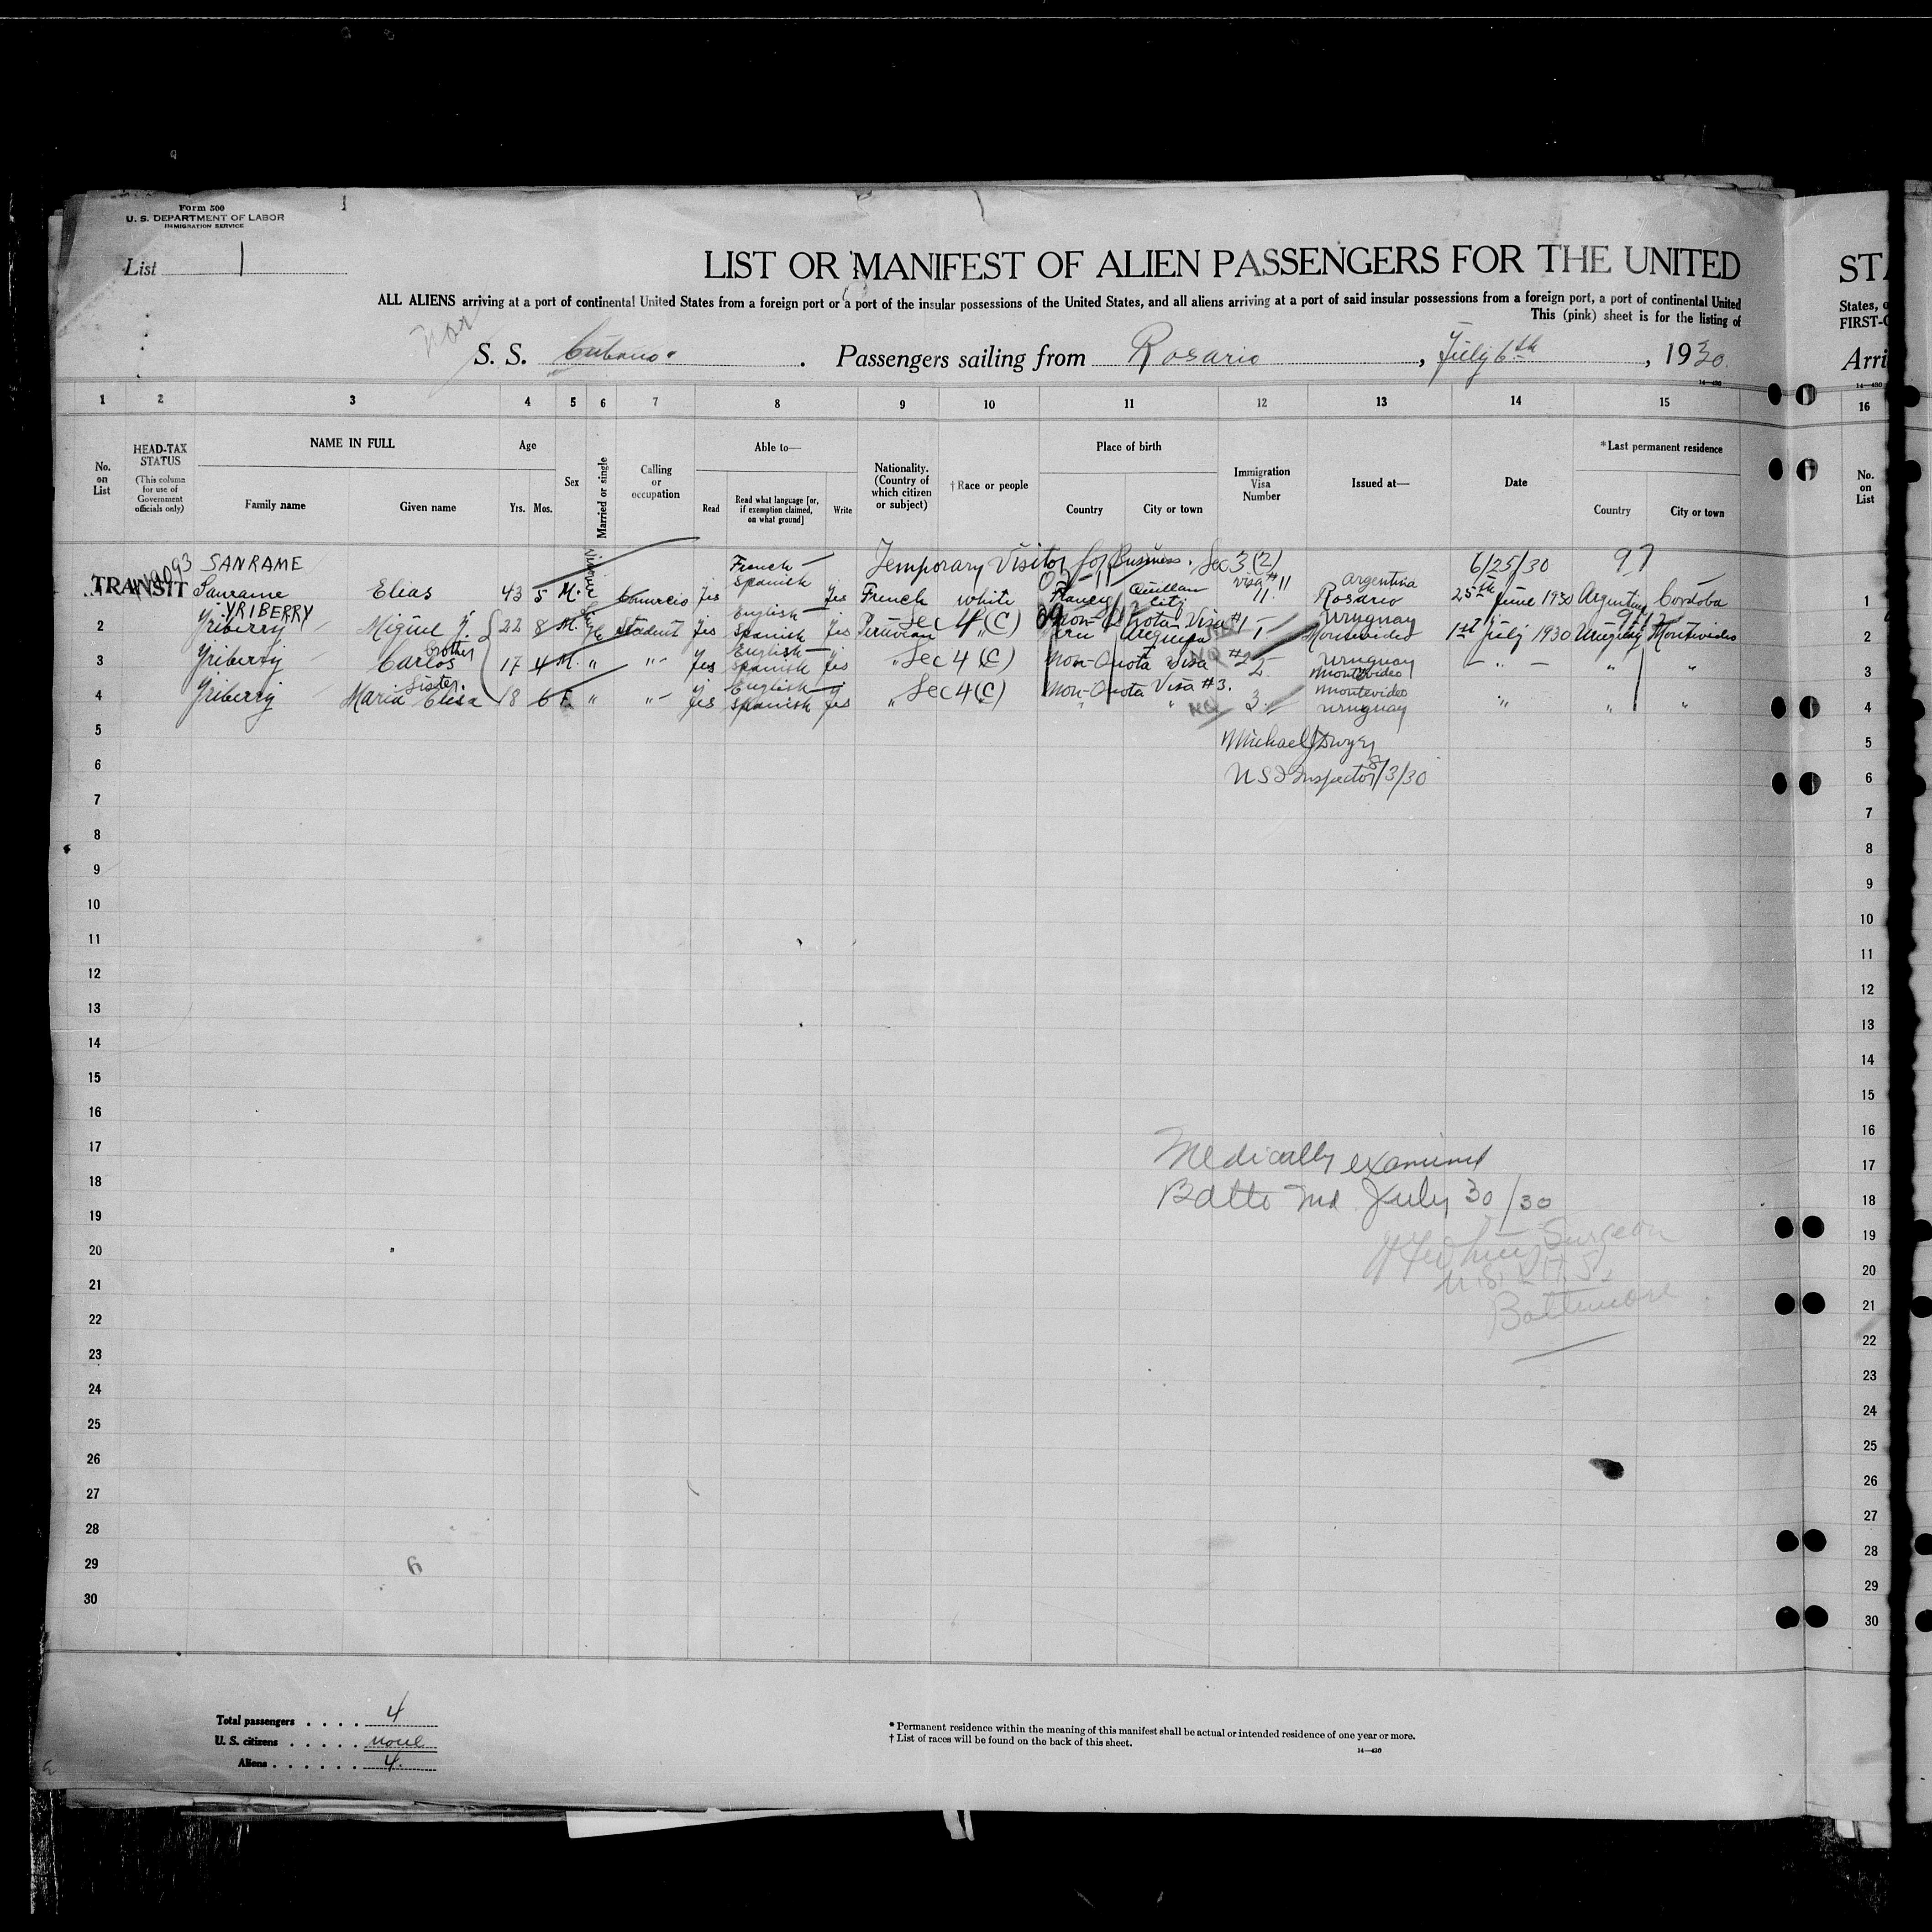 Form 500
U. S. DEPARTMENT OF LABOR
IMMIGRATION SERVICE
List 1
LIST OR MANIFEST OF ALIEN PASSENGERS FOR THE UNITED
STA
ALL ALIENS arriving at a port of continental United States from a foreign port or a port of the insular possessions of the United States, and all aliens arriving at a port of said insular possessions from a foreign port, a port of continental United
States, o
This (pink) sheet is for the listing of
FIRST-C
Nor
S. S. Cubano. Passengers sailing from Rosario, July 6th, 1930.
Arri
14—430
14—430
1 2 3 4 5 6 7 8 9 10 11 12 13 14 15 16
No. on List
HEAD-TAX STATUS
(This column for use of Government officials only)
NAME IN FULL
Family name
Given name
Age
Yrs. Mos.
Sex
Married or single
Calling or occupation
Able to—
Read
Read what language [or, if exemption claimed, on what ground]
Write
Nationality. (Country of which citizen or subject)
† Race or people
Place of birth
Country
City or town
Immigration Visa Number
Issued at—
Date
* Last permanent residence
Country
City or town
No. on List
SANRAME French — Temporary Visitor for Business. Sec 3(2) 6/25/30 97
Spanish Visa #11 Argentina
1 TRANSIT Sanrame Elias 43 5 M. Comercio Yes Yes French white Quillan City 11. Rosario 25th June 1930 Argentina Cordoba 1
YRIBERRY English — Sec 4(C) Non-Quota Visa #1 Uruguay
2 Yriberry Miguel J. 22 8 M. Student Yes Spanish Yes Peruvian Peru Arequipa 1 Montevideo 1st July 1930 Uruguay Montevideo 2
brother English — Sec 4(C) Non-Quota Visa #2 Uruguay
3 Yriberry Carlos 17 4 M. " " Yes Spanish Yes " NQ 2 Montevideo " " " 3
Sister. English — Sec 4(C) Non-Quota Visa #3. Montevideo
4 Yriberry Maria Elisa 18 6 F. " " Yes Spanish Yes " " " NQ 3 Uruguay " " " 4
5 Michael J Dwyer 5
6 U S I Inspector 8/3/30 6
7 7
8 8
9 9
10 10
11 11
12 12
13 13
14 14
15 15
16 16
17 Medically examined 17
18 Balto Md July 30/30 18
19 Surgeon 19
20 20
21 Baltimore 21
22 22
23 23
24 24
25 25
26 26
27 27
28 28
29 6 29
30 30
Total passengers . . . . 4
U. S. citizens . . . . . none
Aliens . . . . . . 4.
* Permanent residence within the meaning of this manifest shall be actual or intended residence of one year or more.
† List of races will be found on the back of this sheet.
14—430